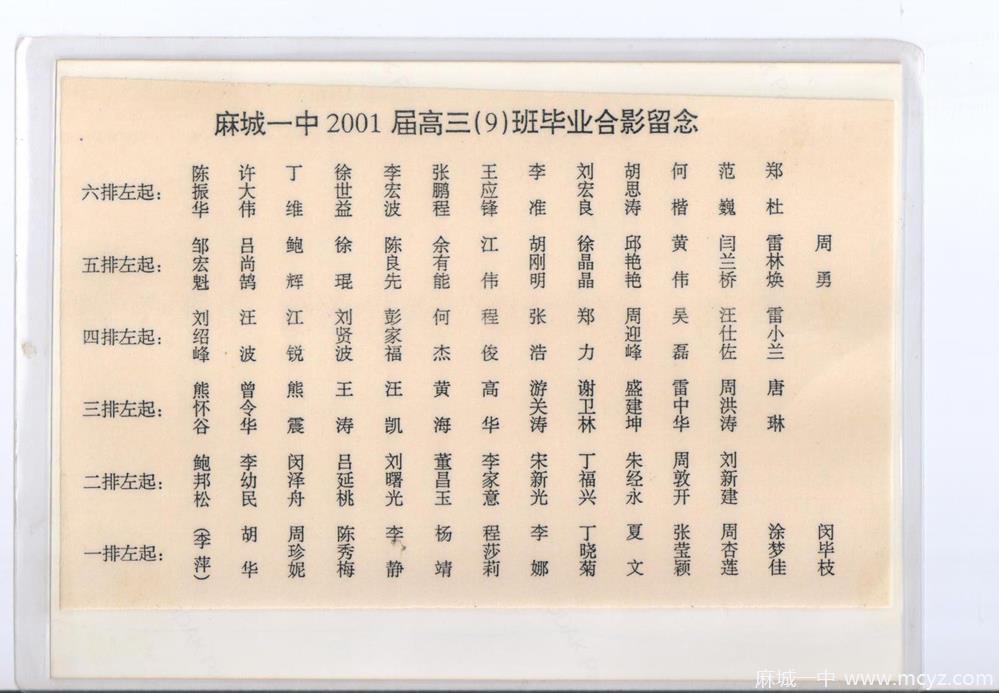 麻城一中 2001 届高三(9)班毕业合影留念
六排左起: 陈振华 许大伟 丁维 徐世益 李宏波 张鹏程 王应锋 李准 刘宏良 胡思涛 何楷 范巍 郑杜
五排左起: 邹宏魁 吕尚鹄 鲍辉 徐琨 陈良先 余有能 江伟 胡刚明 徐晶晶 邱艳艳 黄伟 闫兰桥 雷林焕 周勇
四排左起: 刘绍峰 汪波 江锐 刘贤波 彭家福 何杰 程俊 张浩 郑力 周迎峰 吴磊 汪仕佐 雷小兰
三排左起: 熊怀谷 曾令华 熊震 王涛 汪凯 黄海 高华 游关涛 谢卫林 盛建坤 雷中华 周洪涛 唐琳
二排左起: 鲍邦松 李幼民 闵泽舟 吕延桃 刘曙光 董昌玉 李家意 宋新光 丁福兴 朱经永 周敦开 刘新建
一排左起: (李萍) 胡华 周珍妮 陈秀梅 李静 杨靖 程莎莉 李娜 丁晓菊 夏文 张莹颖 周杏莲 涂梦佳 闵毕枝
麻城一中 www.mcyz.com